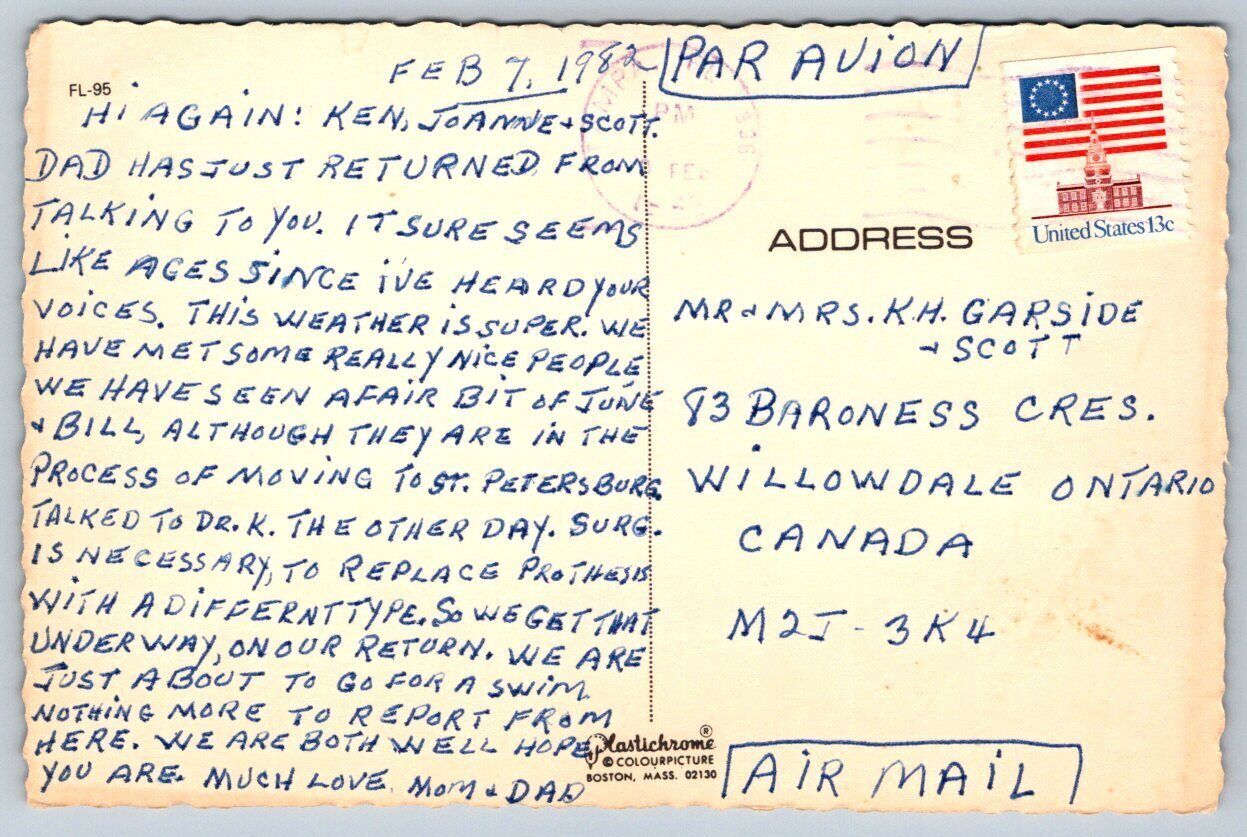 FEB 7, 1982
FL-95
HI AGAIN: KEN, JOANNE & SCOTT.
DAD HAS JUST RETURNED FROM
TALKING TO YOU. IT SURE SEEMS
LIKE AGES SINCE I'VE HEARD YOUR
VOICES. THIS WEATHER IS SUPER. WE
HAVE MET SOME REALLY NICE PEOPLE
WE HAVE SEEN A FAIR BIT OF JUNE
& BILL, ALTHOUGH THEY ARE IN THE
PROCESS OF MOVING TO ST. PETERSBURG.
TALKED TO DR. K. THE OTHER DAY. SURG.
IS NECESSARY, TO REPLACE PROTHESIS
WITH A DIFFERNT TYPE. SO WE GET THAT
UNDERWAY, ON OUR RETURN. WE ARE
JUST ABOUT TO GO FOR A SWIM.
NOTHING MORE TO REPORT FROM
HERE. WE ARE BOTH WELL HOPE
YOU ARE. MUCH LOVE. MOM & DAD
Plastichrome ®
© COLOURPICTURE
BOSTON, MASS. 02130
PAR AVION
PM
FEB
United States 13c
ADDRESS
MR & MRS. K.H. GARSIDE
& SCOTT
83 BARONESS CRES.
WILLOWDALE ONTARIO
CANADA
M2J - 3K4
AIR MAIL